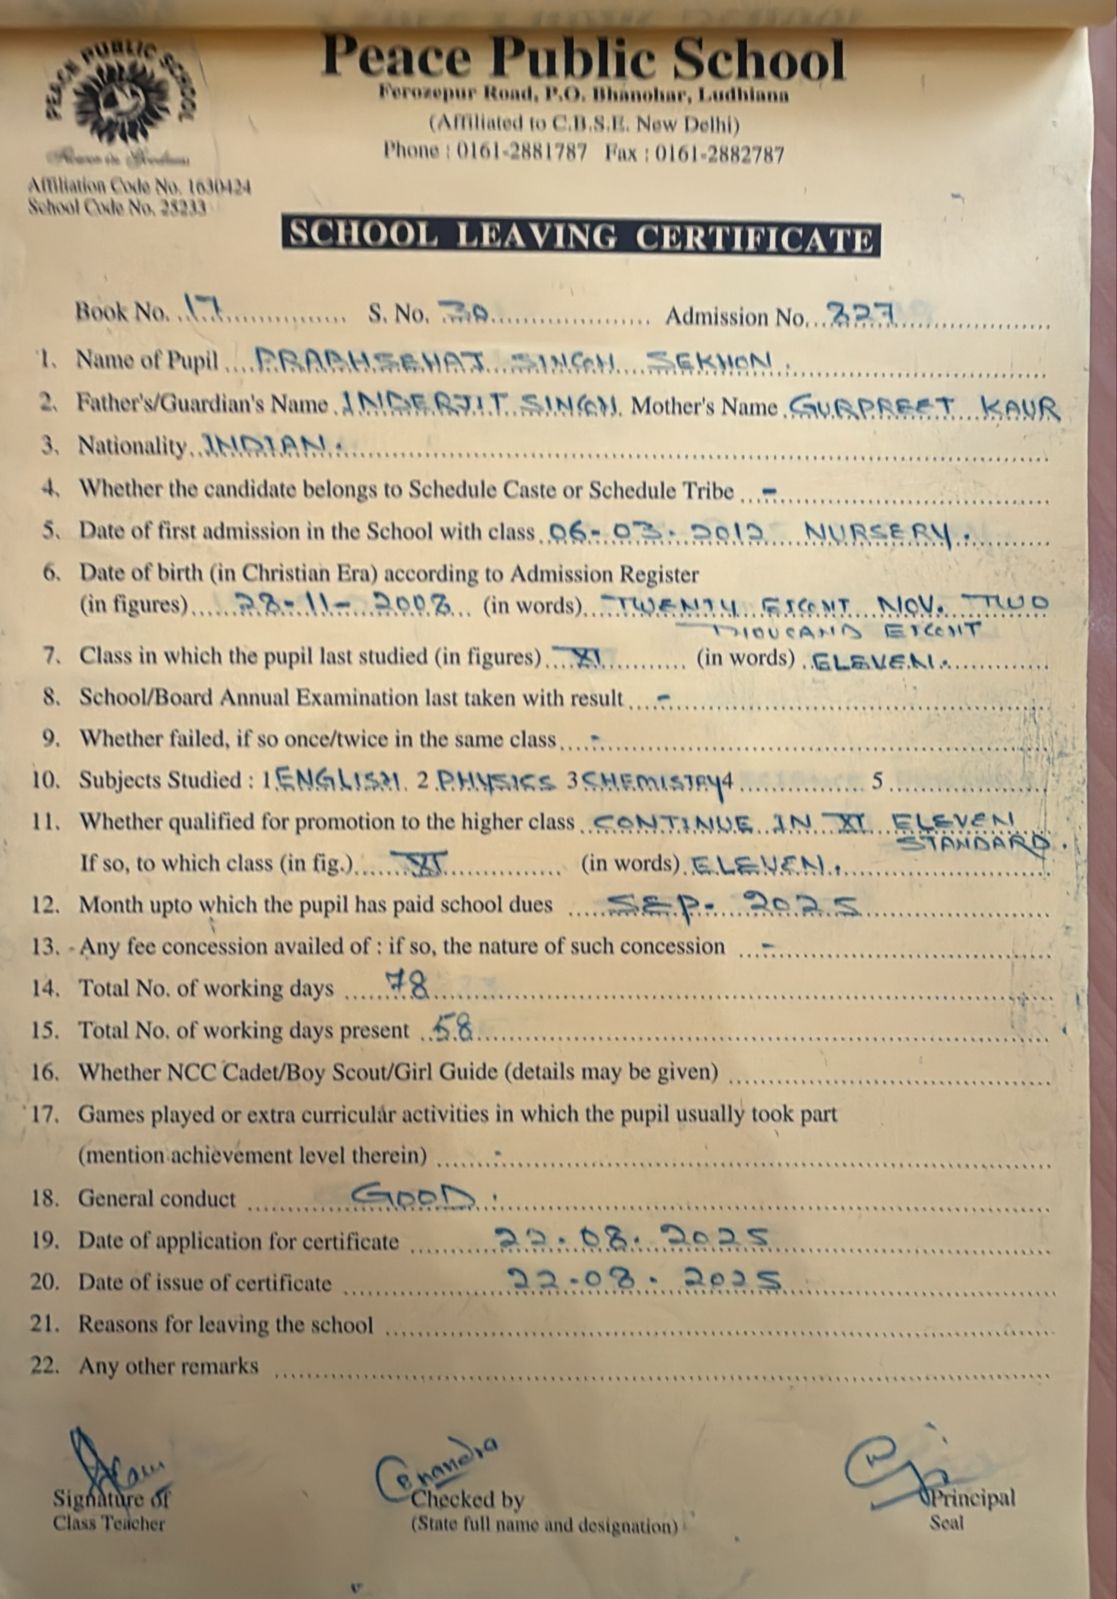 PEACE PUBLIC SCHOOL
Peace Public School
Ferozepur Road, P.O. Bhanohar, Ludhiana
(Affiliated to C.B.S.E. New Delhi)
Phone : 0161-2881787 Fax : 0161-2882787
Affiliation Code No. 1630424
School Code No. 25233
SCHOOL LEAVING CERTIFICATE
Book No. 17 S. No. 30 Admission No. 327
1. Name of Pupil PRABHSEHAJ SINGH SEKHON.
2. Father's/Guardian's Name INDERJIT SINGH. Mother's Name GURPREET KAUR
3. Nationality INDIAN.
4. Whether the candidate belongs to Schedule Caste or Schedule Tribe -
5. Date of first admission in the School with class 06-03-2012 NURSERY.
6. Date of birth (in Christian Era) according to Admission Register
(in figures) 28-11-2008 (in words) TWENTY EIGHT NOV. TWO
THOUSAND EIGHT
7. Class in which the pupil last studied (in figures) XI (in words) ELEVEN.
8. School/Board Annual Examination last taken with result -
9. Whether failed, if so once/twice in the same class -
10. Subjects Studied : 1 ENGLISH. 2 PHYSICS 3 CHEMISTRY 4 5
11. Whether qualified for promotion to the higher class CONTINUE IN XI ELEVEN
STANDARD.
If so, to which class (in fig.) XI (in words) ELEVEN.
12. Month upto which the pupil has paid school dues SEP- 2025
13. Any fee concession availed of : if so, the nature of such concession -
14. Total No. of working days 78
15. Total No. of working days present 58
16. Whether NCC Cadet/Boy Scout/Girl Guide (details may be given)
17. Games played or extra curricular activities in which the pupil usually took part
(mention achievement level therein) -
18. General conduct GOOD.
19. Date of application for certificate 22.08.2025
20. Date of issue of certificate 22-08.2025
21. Reasons for leaving the school
22. Any other remarks
Chandra
Signature of Checked by Principal
Class Teacher (State full name and designation) Seal